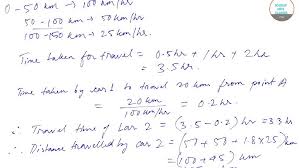 0-50 km → 100 km/hr
50-100 km → 50 km/hr
100-150 km → 25 km/hr
Time taken for travel = 0.5hr + 1hr + 2hr
= 3.5hr.
Time taken by car 1 to travel 20 km from point A
= 20 km / 100 km/hr = 0.2hr.
∴ Travel time of Car 2 = (3.5-0.2)hr = 3.3hr
∴ Distance travelled by car 2 = (50 + 50 + 1.8×25) km
= (100 + 45) km